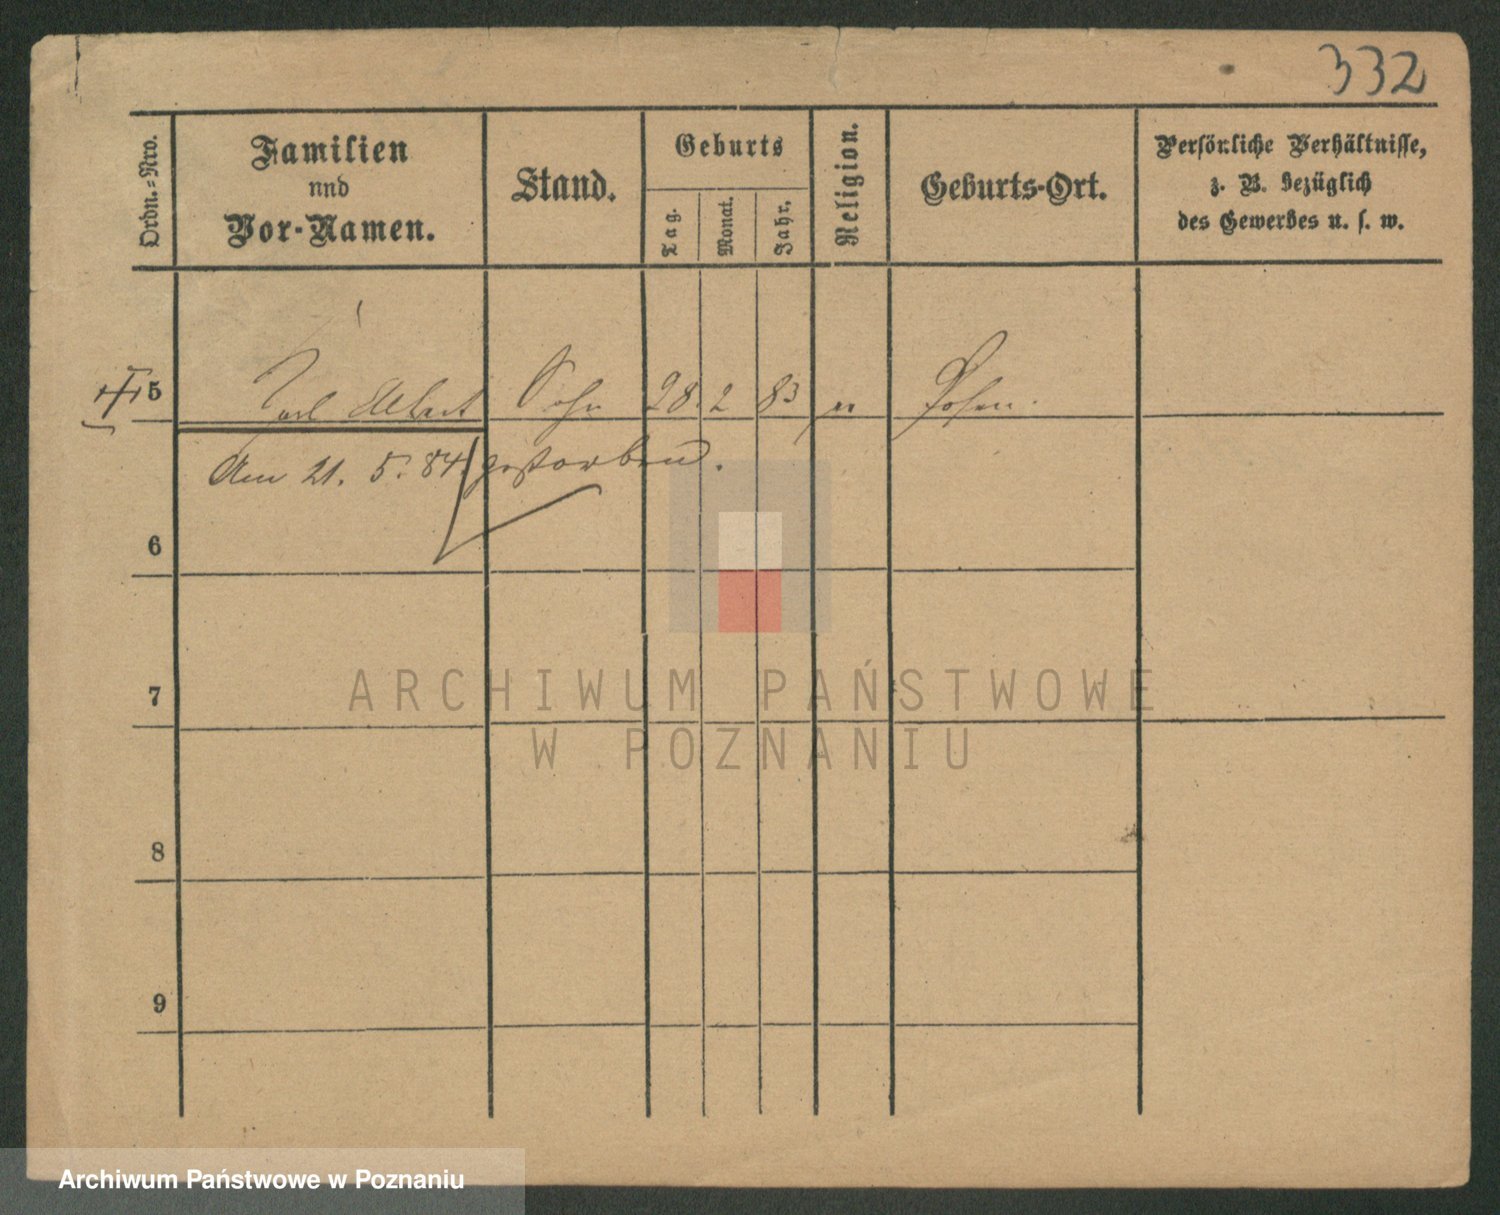 332
Ordn.-Nro.
Familien
und
Vor-Namen.
Stand.
Geburts
Tag.
Monat.
Jahr.
Religion.
Geburts-Ort.
Persönliche Verhältnisse,
z. B. bezüglich
des Gewerbes u. s. w.
5 Albert Sohn 28. 2 83 " Posen.
Am 21. 5. 84 gestorben.
6
7
8
9
ARCHIWUM PAŃSTWOWE
W POZNANIU
Archiwum Państwowe w Poznaniu